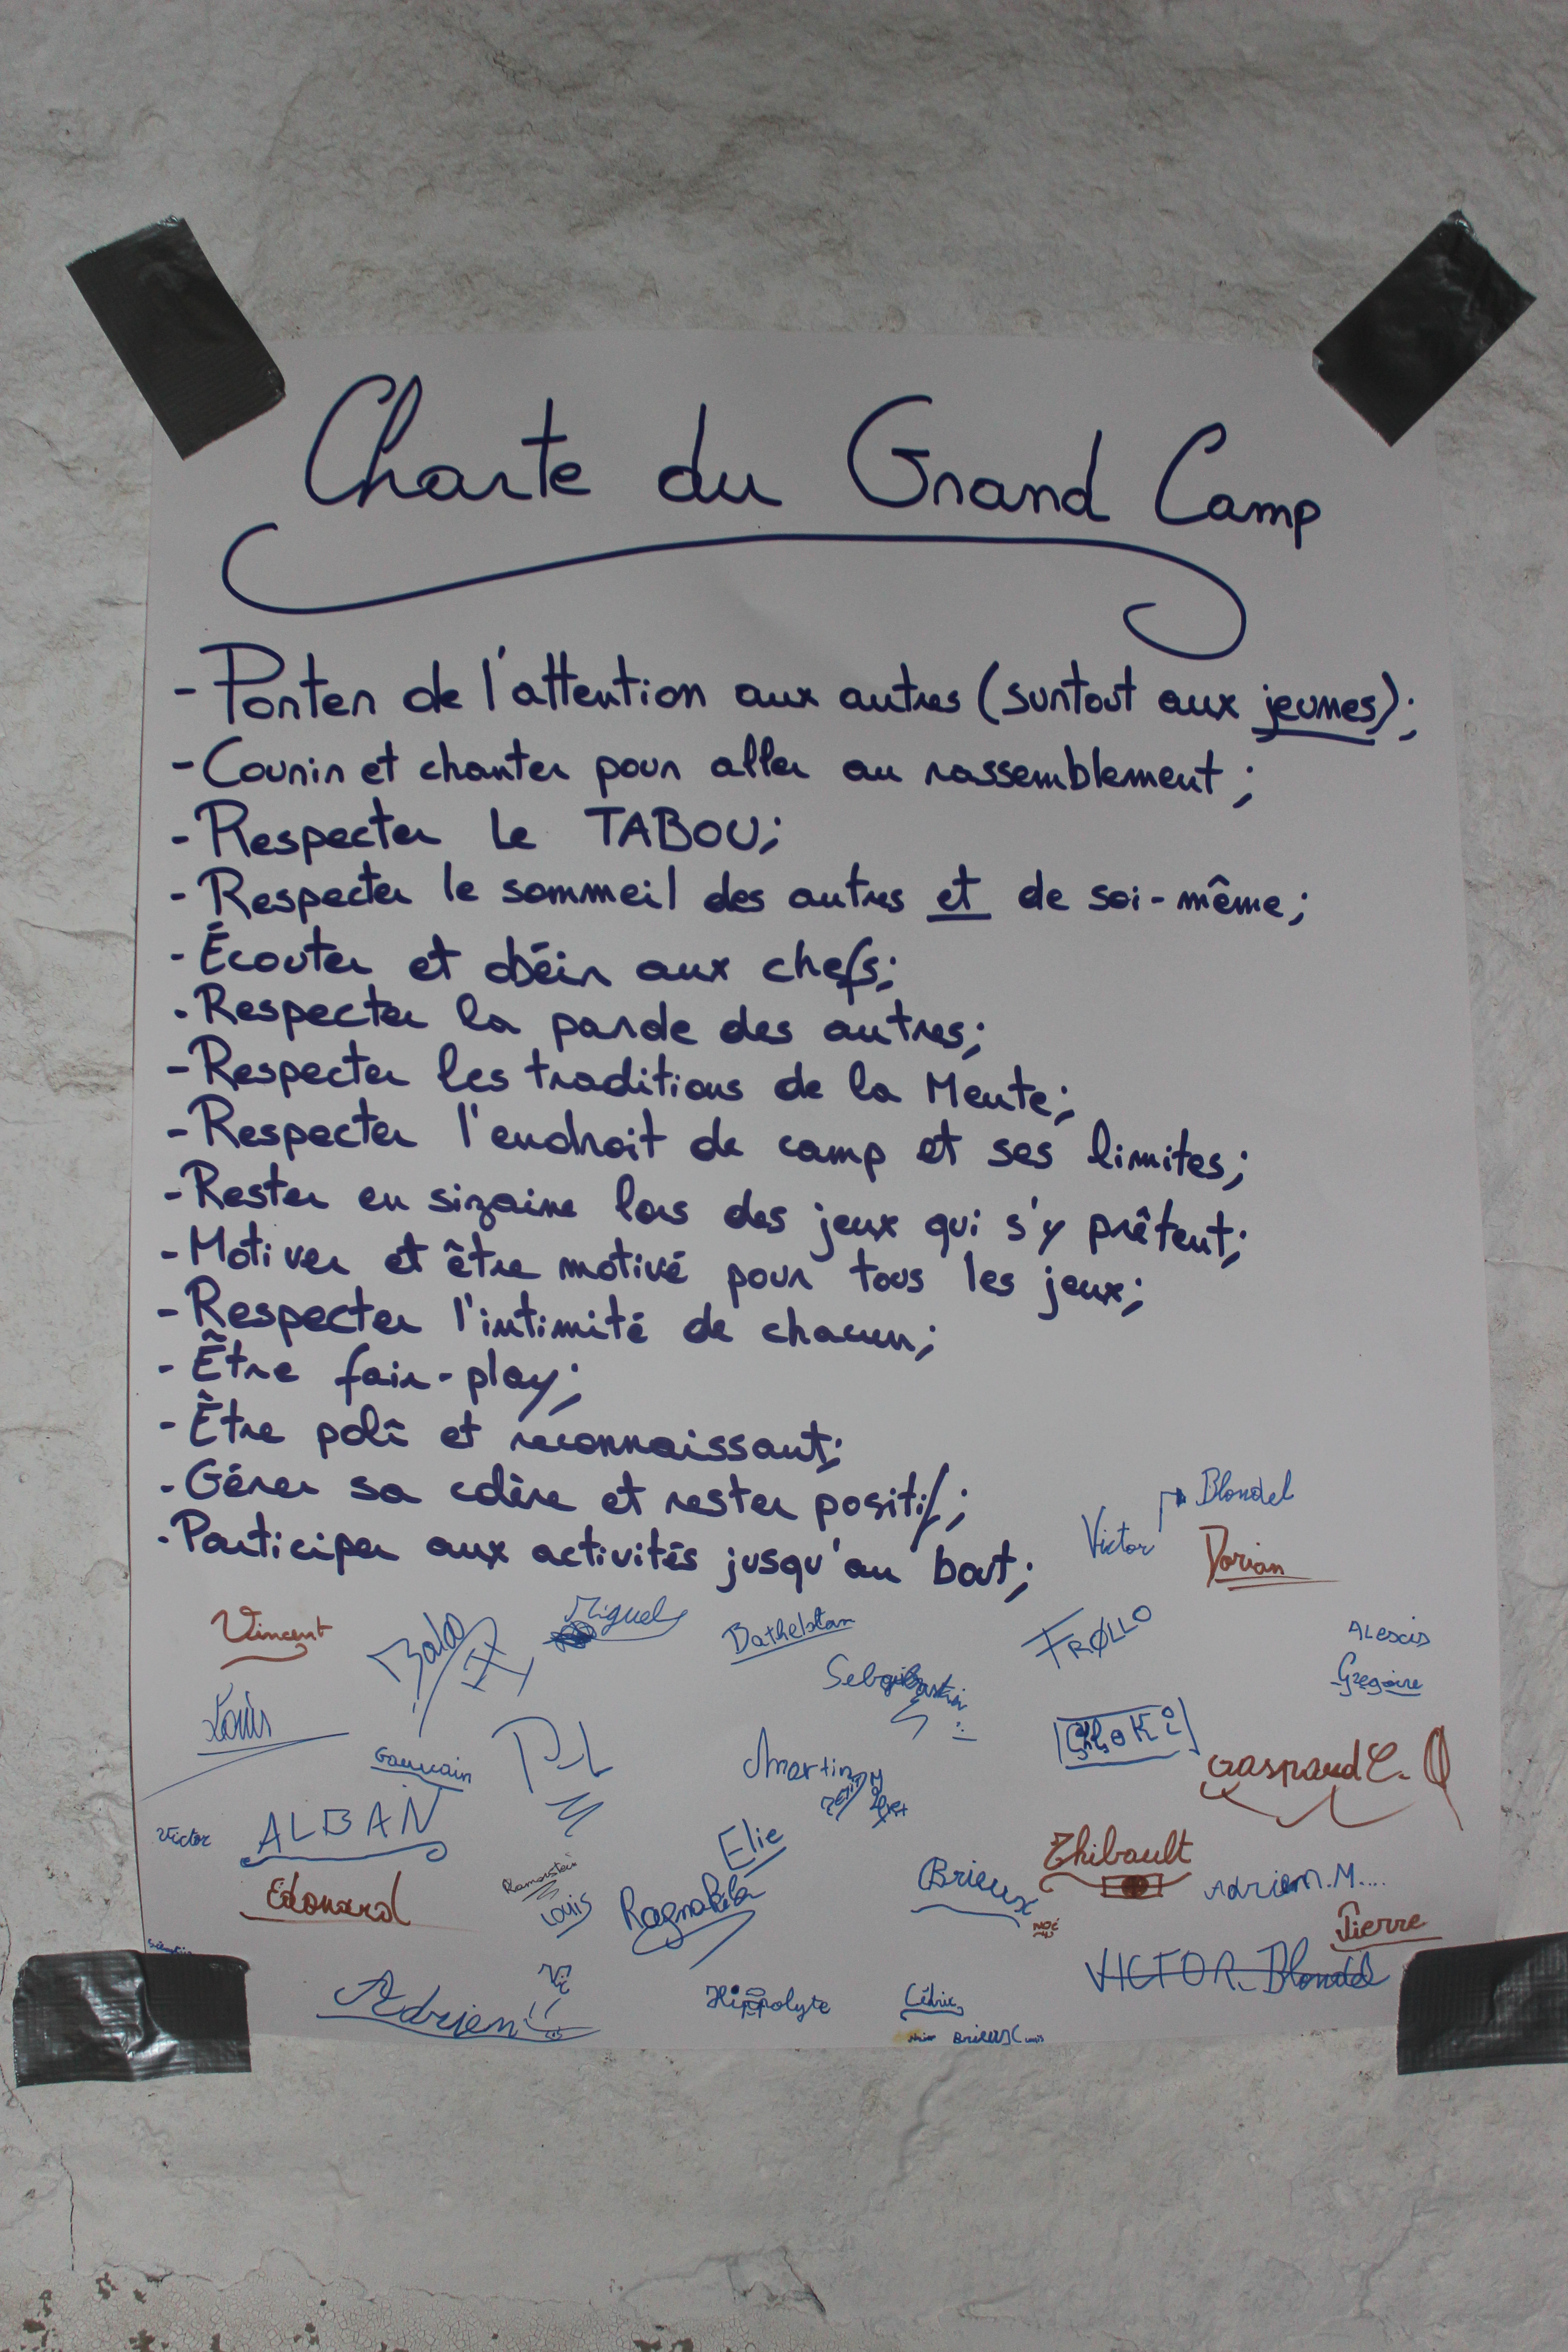 Charte du Grand Camp
- Porter de l'attention aux autres (surtout aux jeunes);
- Courir et chanter pour aller au rassemblement;
- Respecter le TABOU;
- Respecter le sommeil des autres et de soi-même;
- Écouter et obéir aux chefs;
- Respecter la parole des autres;
- Respecter les traditions de la Meute;
- Respecter l'endroit de camp et ses limites;
- Rester en sizaine lors des jeux qui s'y prêtent;
- Motiver et être motivé pour tous les jeux;
- Respecter l'intimité de chacun;
- Être fair-play;
- Être poli et reconnaissant;
- Gérer sa colère et rester positif;
- Participer aux activités jusqu'au bout;
Blondel
Victor
Dorian
Vincent
Miguel
FRØLLO
ALexis
Gregoire
Louis
Gauvain
Martin
Gaspard C.
Victor
ALBAN
Elie
Thibault
Edouard
Louis
Brieux
Adrien.M....
NOÉ
Pierre
VICTOR Blondel
Adrien
Hippolyte
Cédric